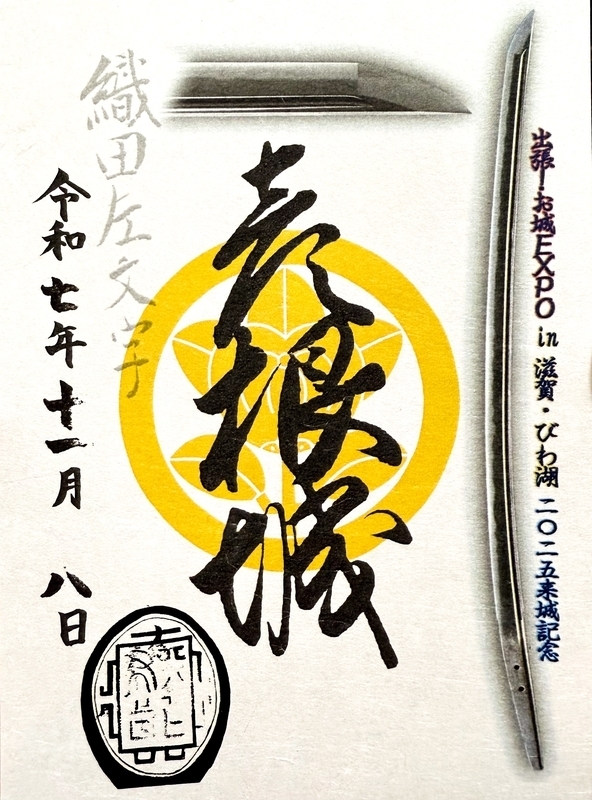 出張！お城EXPO in 滋賀・びわ湖 二〇二五来城記念
彦根城
織田左文字
令和七年十一月 八日